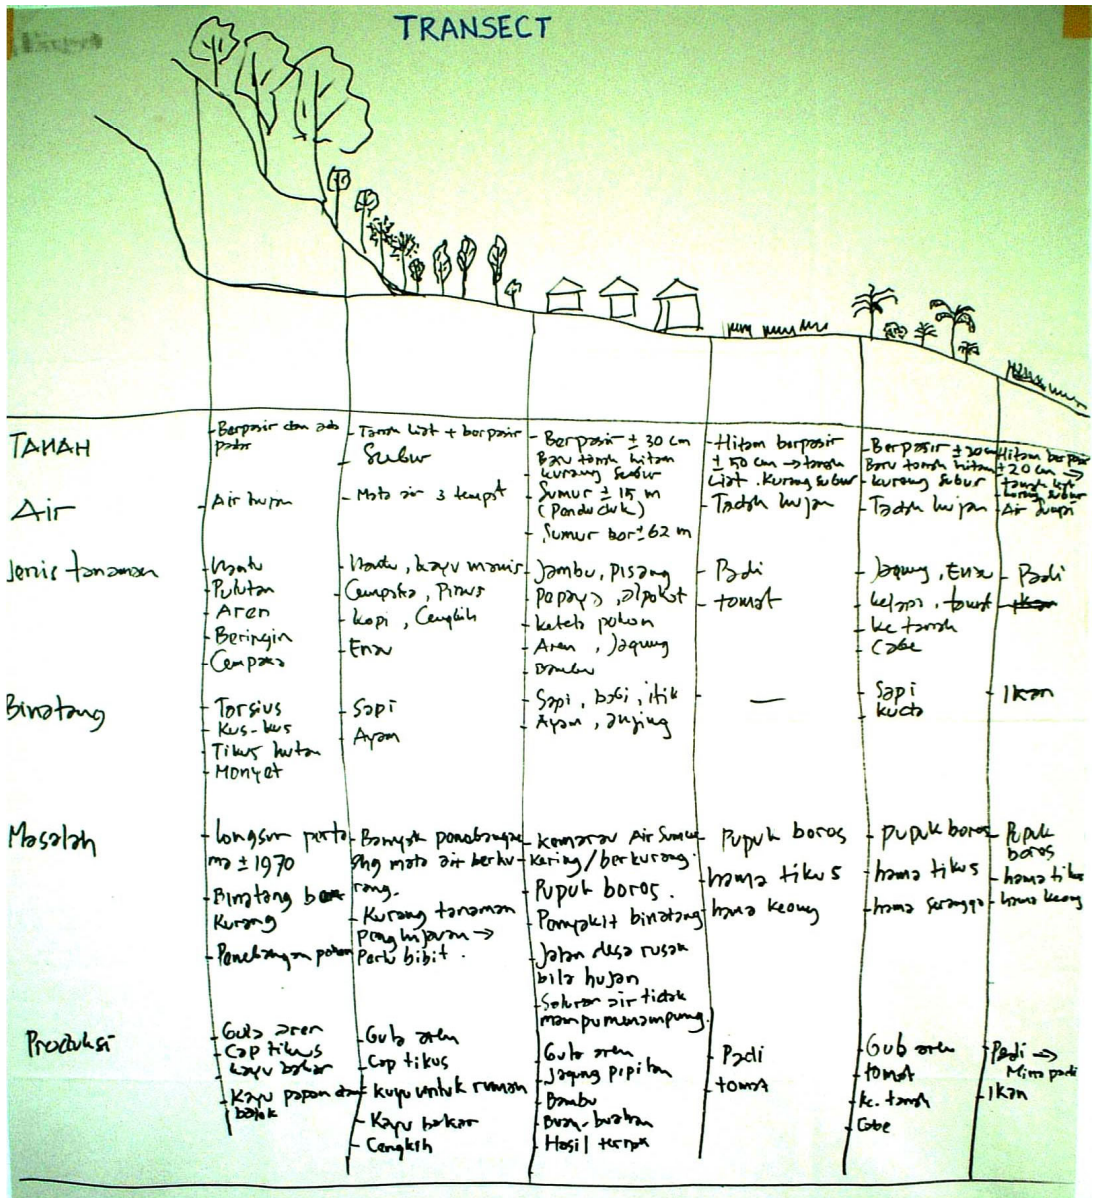 TRANSECT
TANAH
- Berpasir dan ada
padas
- Tanah liat + berpasir
- Subur
- Berpasir ± 30 cm
Baru tanah hitam
- kurang subur
- Hitam berpasir
± 50 cm → tanah
liat. Kurang subur
- Berpasir ± 30 cm
Baru tanah hitam
- kurang subur
- Hitam berpasir
± 20 cm →
tanah liat
kurang subur
Air
- Air hujan
- Mata air 3 tempat
- Sumur ± 15 m
(Penduduk)
- Sumur bor ± 62 m
- Tadah hujan
- Tadah hujan
- Air sungai
Jenis tanaman
- Pulutan
- Aren
- Beringin
- Cempaka
kayu manis
Cempaka, Pinus
- Kopi, Cengkih
- Enau
- Jambu, pisang
- Papaya, alpokat
- ketela pohon
- Aren, Jagung
- Bambu
- Padi
- tomat
- Jagung, Enau
- kelapa, tomat
- kc tanah
- Cabe
- Padi
- Ikan
Binatang
- Tarsius
- Kus-kus
- Tikus hutan
- Monyet
- Sapi
- Ayam
- Sapi, babi, itik
- Ayam, anjing
—
- Sapi
- kuda
- Ikan
Masalah
- Longsor perta
ma ± 1970
- Binatang
kurang
- Penebangan pohon
- Banyak penebangan
shg mata air berku-
rang.
- Kurang tanaman
penghijauan →
Perlu bibit.
- kemarau Air Sumur
kering/berkurang.
- Pupuk boros.
- Penyakit binatang
- Jalan desa rusak
bila hujan
- Saluran air tidak
mampu menampung.
- Pupuk boros
- hama tikus
- hama keong
- pupuk boros
- hama tikus
- hama serangga
- Pupuk
boros
- hama tikus
- hama keong
Produksi
- Gula aren
- Cap tikus
- kayu bakar
- Kayu papan dan
balok
- Gula aren
- Cap tikus
- kayu untuk rumah
- Kayu bakar
- Cengkih
- Gula aren
- Jagung pipilan
- Bambu
- Buah-buahan
- Hasil ternak
- Padi
- tomat
- Gula aren
- tomat
- kc. tanah
- Cabe
- Padi →
Mina padi
- Ikan